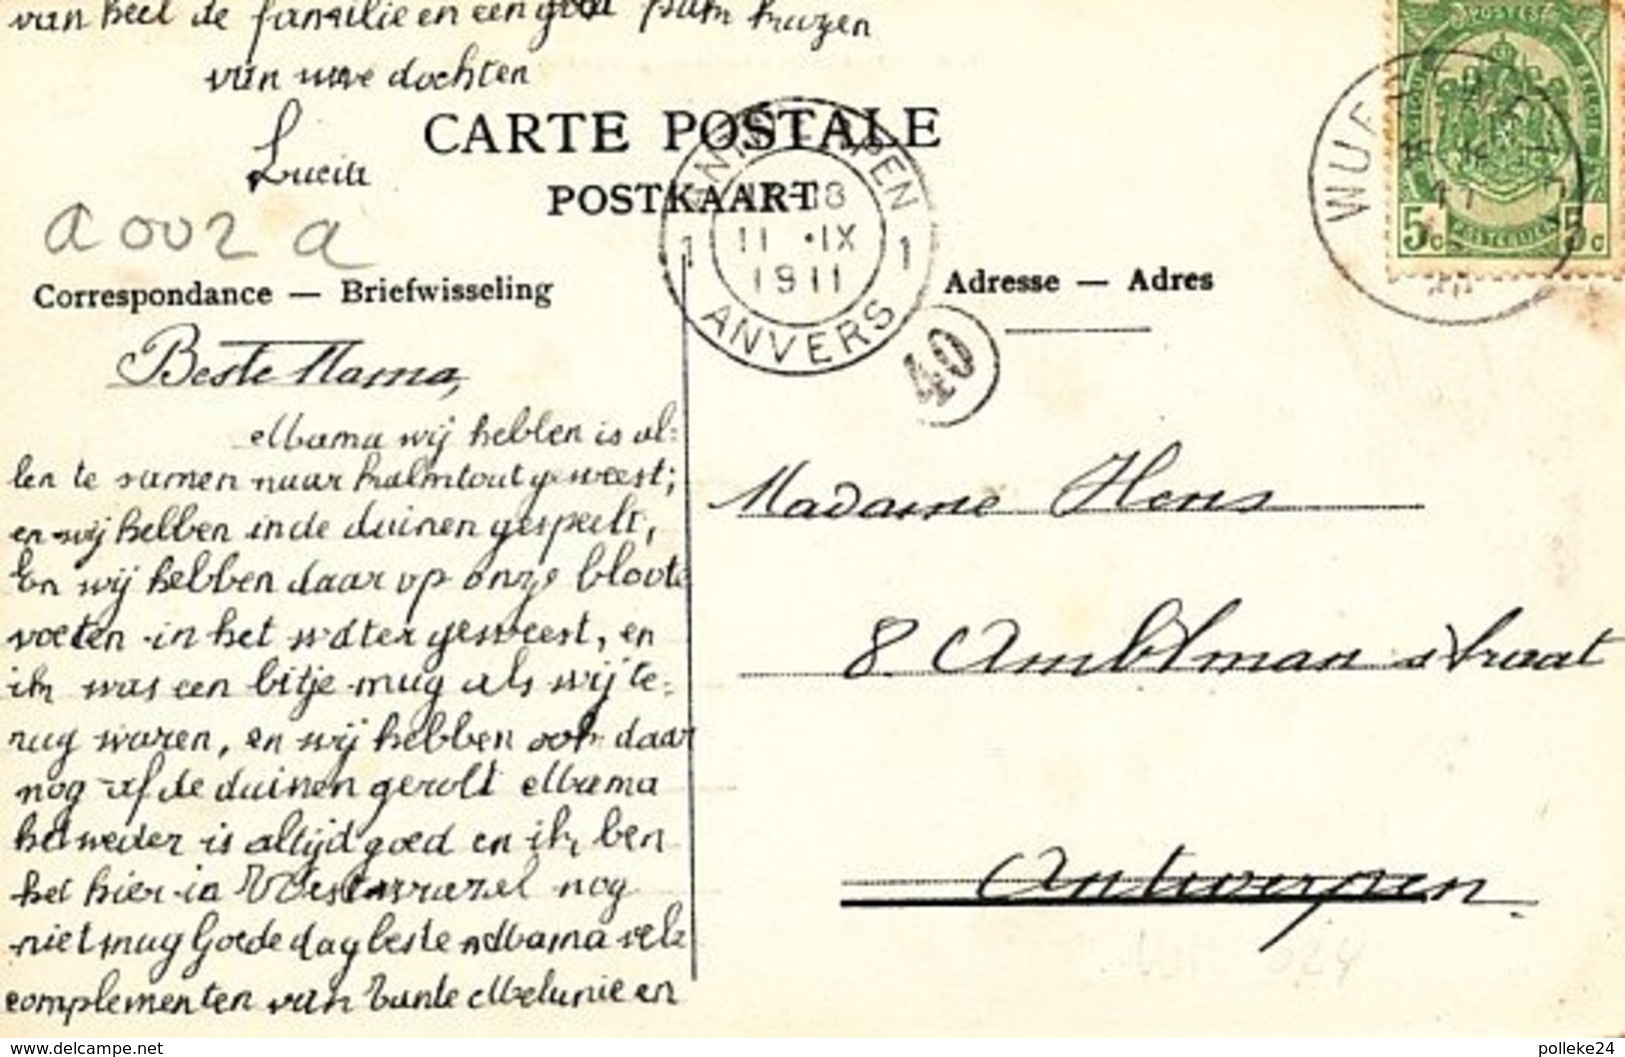 van heel de familie en een goed
van uwe dochter
CARTE POSTALE
POSTKAART
ANTWERPEN
11 •IX
1911
1 1
ANVERS
40
5c 5c
a 002 a
Correspondance — Briefwisseling
Adresse — Adres
Beste Mama,
Mama wij hebben is al-
len te samen naar kalmtout geweest;
en wij hebben in de duinen gespeelt,
En wij hebben daar op onze bloote
voeten in het water geweest, en
ik was een bitje mug als wij te-
rug waren, en wij hebben ook daar
nog af de duinen gerolt Mama
het weder is altijd goed en ik ben
het hier in Westwezel nog
niet mug Goede dag beste Mama vele
complementen van tante Melanie en
Madame Hens
8 Ambtman straat
Antwerpen
www.delcampe.net
polleke24